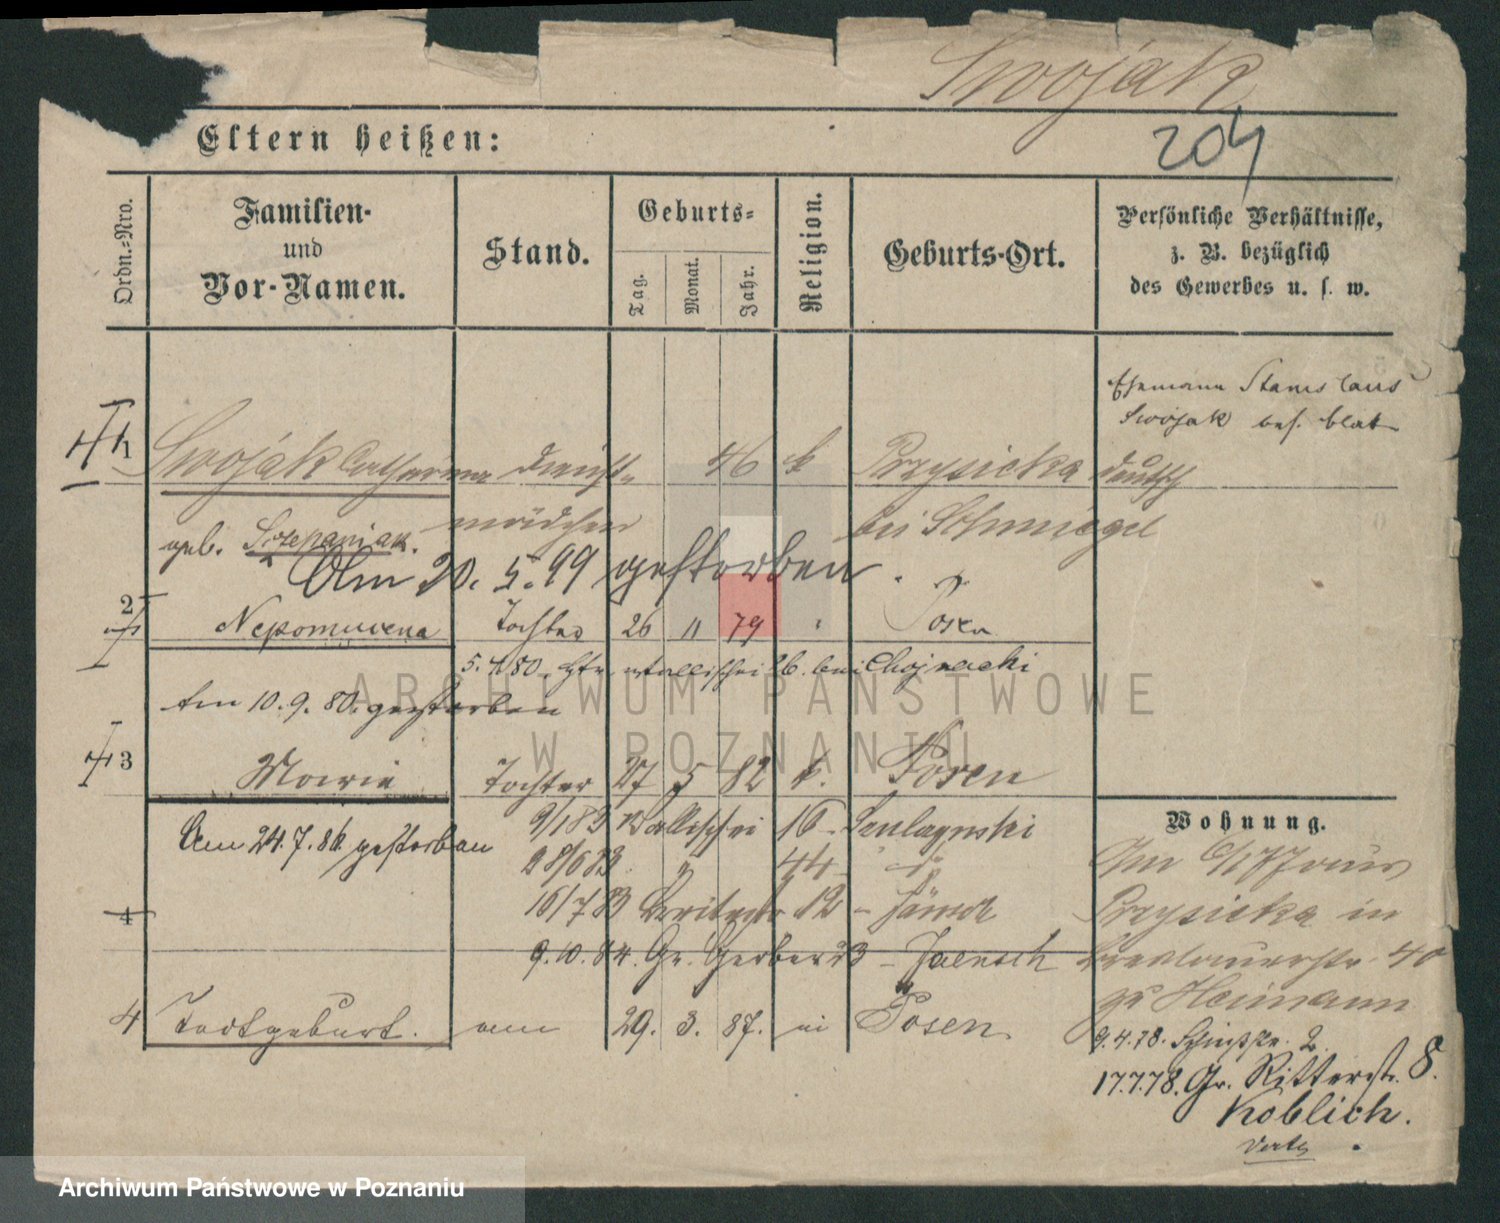 Swoják
204
Eltern heißen:
Ordn.-Nro.
Familien-
und
Vor-Namen.
Stand.
Geburts-
Tag.
Monat.
Jahr.
Religion.
Geburts-Ort.
Persönliche Verhältnisse,
z. B. bezüglich
des Gewerbes u. s. w.
Ehemann Stanislaus
Swojak bes. Blatt
1 Swoják Catharina Dienst- 46 k Przysieka deutsch
geb. Szczepaniak. mädchen bei Schmiegel
Am 20. 5. 99 gestorben.
2 Nepomucena Tochter 26 11 79 " Posen
5. 80. 26. bei Chojnacki
Am 10. 9. 80. gestorben
3 Marie Tochter 27 5 82 k. Posen
Am 24. 7. 86 gestorben
9/1 83 Wallischei 16 - Szulczynski
28/6 83 " 44 - "
16/7 83 12 - Jänsch
4
9. 10. 84. Gr. Gerber 23 - Jaensch
4 Todtgeburt. am 29. 3. 87. in Posen
Wohnung.
Przysieka in
Breslauerstr. 40
Heimann
9. 4. 78. 2
17.7.78. Gr. Ritterstr. 8.
Koblich.
ARCHIWUM PAŃSTWOWE
W POZNANIU
Archiwum Państwowe w Poznaniu